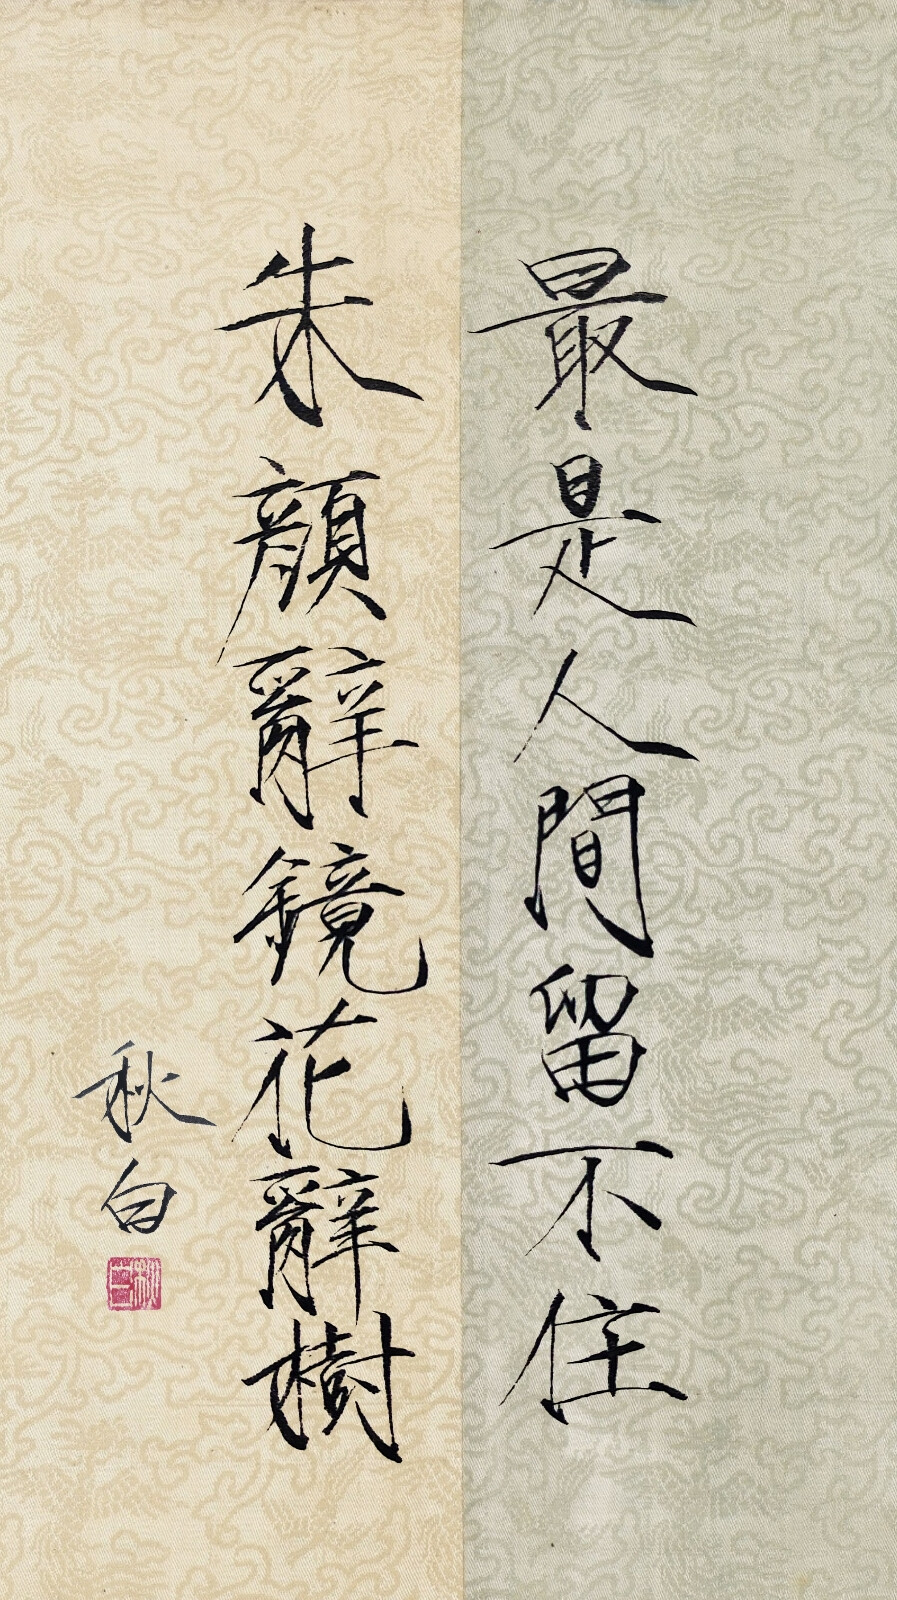 最是人間留不住
朱顔辭鏡花辭樹
秋白
秋白